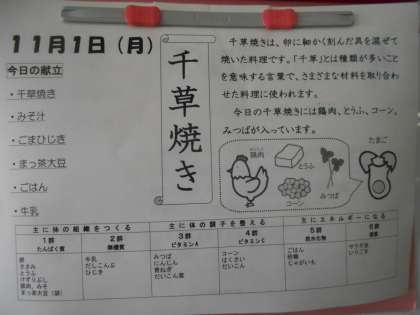 11月1日(月)
今日の献立
・千草焼き
・みそ汁
・ごまひじき
・まっ茶大豆
・ごはん
・牛乳
千草焼き
千草焼きは、卵に細かく刻んだ具を混ぜて
焼いた料理です。「千草」とは種類が多いこと
を意味する言葉で、さまざまな材料を取り合わ
せた料理に使われます。
今日の千草焼きには鶏肉、とうふ、コーン、
みつばが入っています。
鶏肉
とうふ
みつば
コーン
たまご
主に体の組織をつくる
主に体の調子を整える
主にエネルギーになる
1群
たんぱく質
2群
無機質
3群
ビタミンA
4群
ビタミンC
5群
炭水化物
6群
脂質
卵
ささみ
とうふ
けずりぶし
鶏肉、みそ
まっ茶大豆(袋)
牛乳
だしこんぶ
ひじき
みつば
にんじん
青ねぎ
だいこん葉
コーン
はくさい
だいこん
ごはん
砂糖
じゃがいも
サラダ油
いりごま